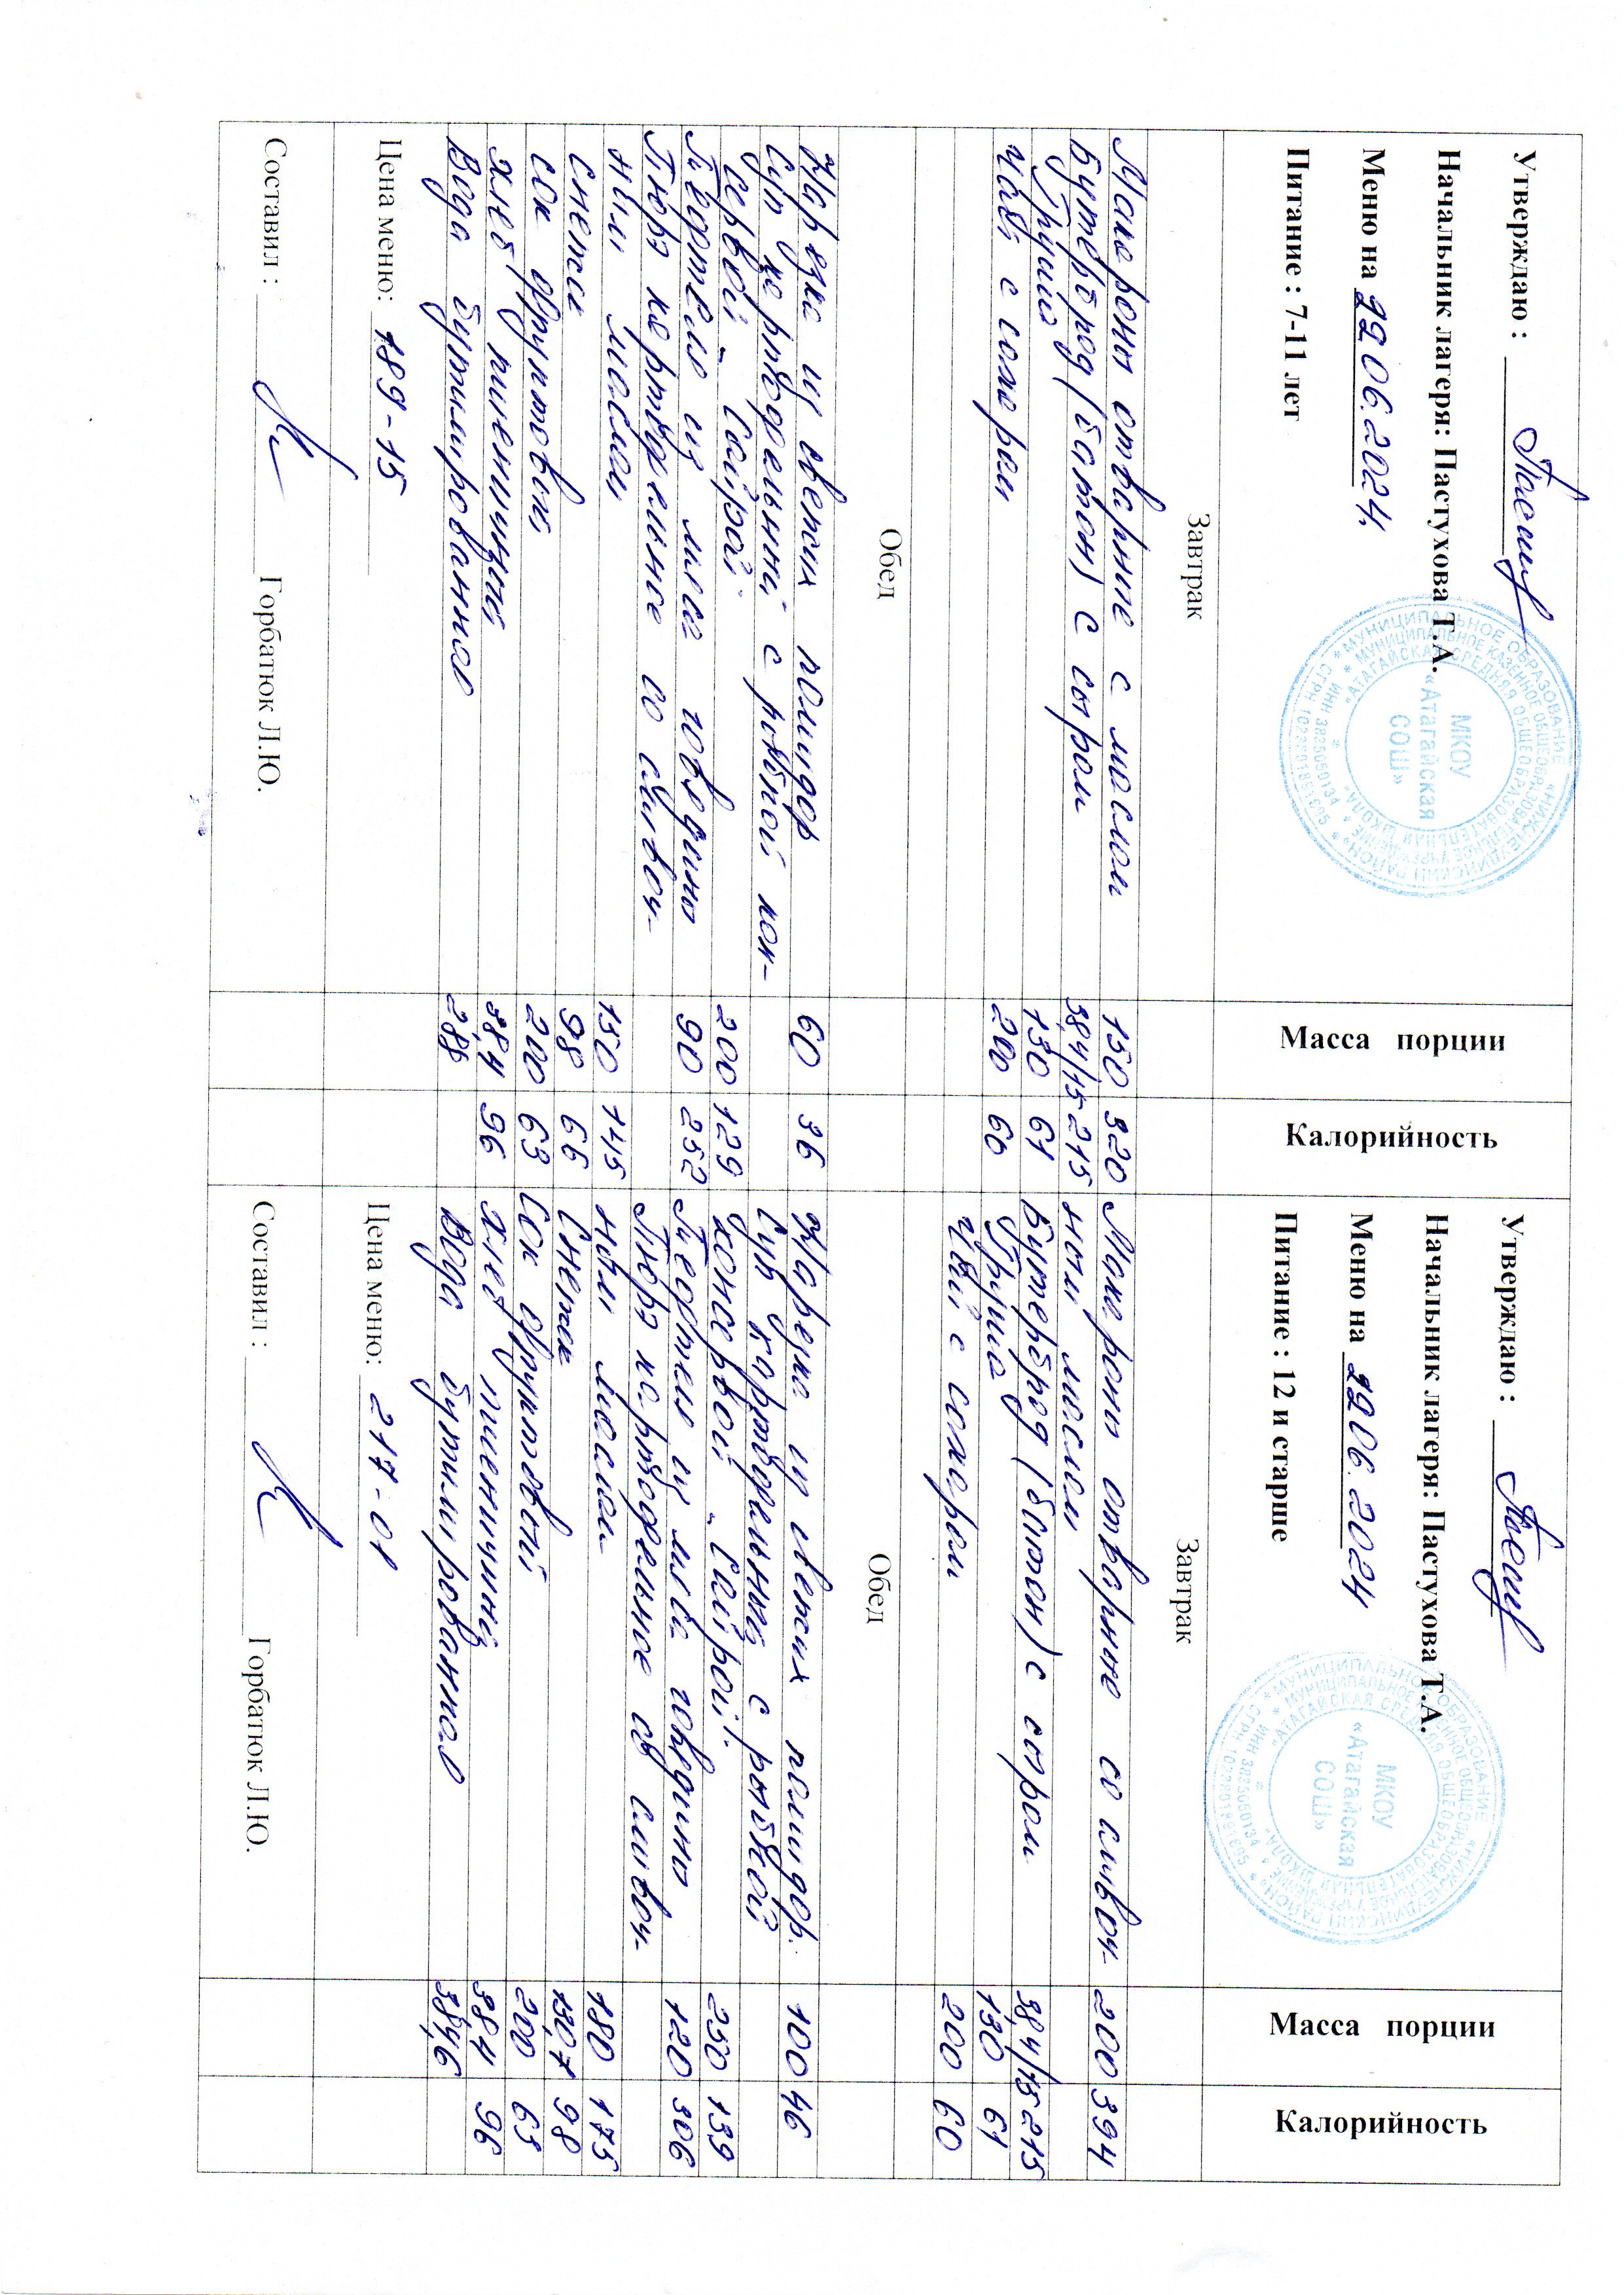 Утверждаю :
Начальник лагеря: Пастухова Т.А.
Меню на 22 06.2024.
Питание : 7-11 лет
Масса порции
Калорийность
МКОУ
«Атагайская
СОШ»
Завтрак
Макароны отварные с маслом 150 320
Бутерброд (батон) с сыром 38,4/15 215
Груша 130 61
Чай с сахаром 200 60
Обед
Нарезка из свежих помидор 60 36
Суп картофельный с рыбной кон-
сервой „Сайрой" 200 129
Тефтели из мяса говядины 90 252
Пюре картофельное со сливоч-
ным маслом 150 145
Снежок 98 66
Сок фруктовый 200 63
Хлеб пшеничный 38,4 96
Вода бутилированная 288
Цена меню: 189-15
Составил : Горбатюк Л.Ю.
Утверждаю :
Начальник лагеря: Пастухова Т.А.
Меню на 22 06. 2024
Питание : 12 и старше
Масса порции
Калорийность
МКОУ
«Атагайская
СОШ»
Завтрак
Макароны отварные со сливоч- 200 394
ным маслом
Бутерброд (батон) с сыром 38,4/15 215
Груша 130 61
Чай с сахаром 200 60
Обед
Нарезка из свежих помидор. 100 46
Суп картофельный с рыбной
консервой „Сайрой". 250 139
Тефтели из мяса говядины 120 306
Пюре картофельное со сливоч-
ным маслом 180 175
Снежок 130,7 98
Сок фруктовый 200 63
Хлеб пшеничный 38,4 96
Вода бутилированная 38,46
Цена меню: 217-01
Составил : Горбатюк Л.Ю.